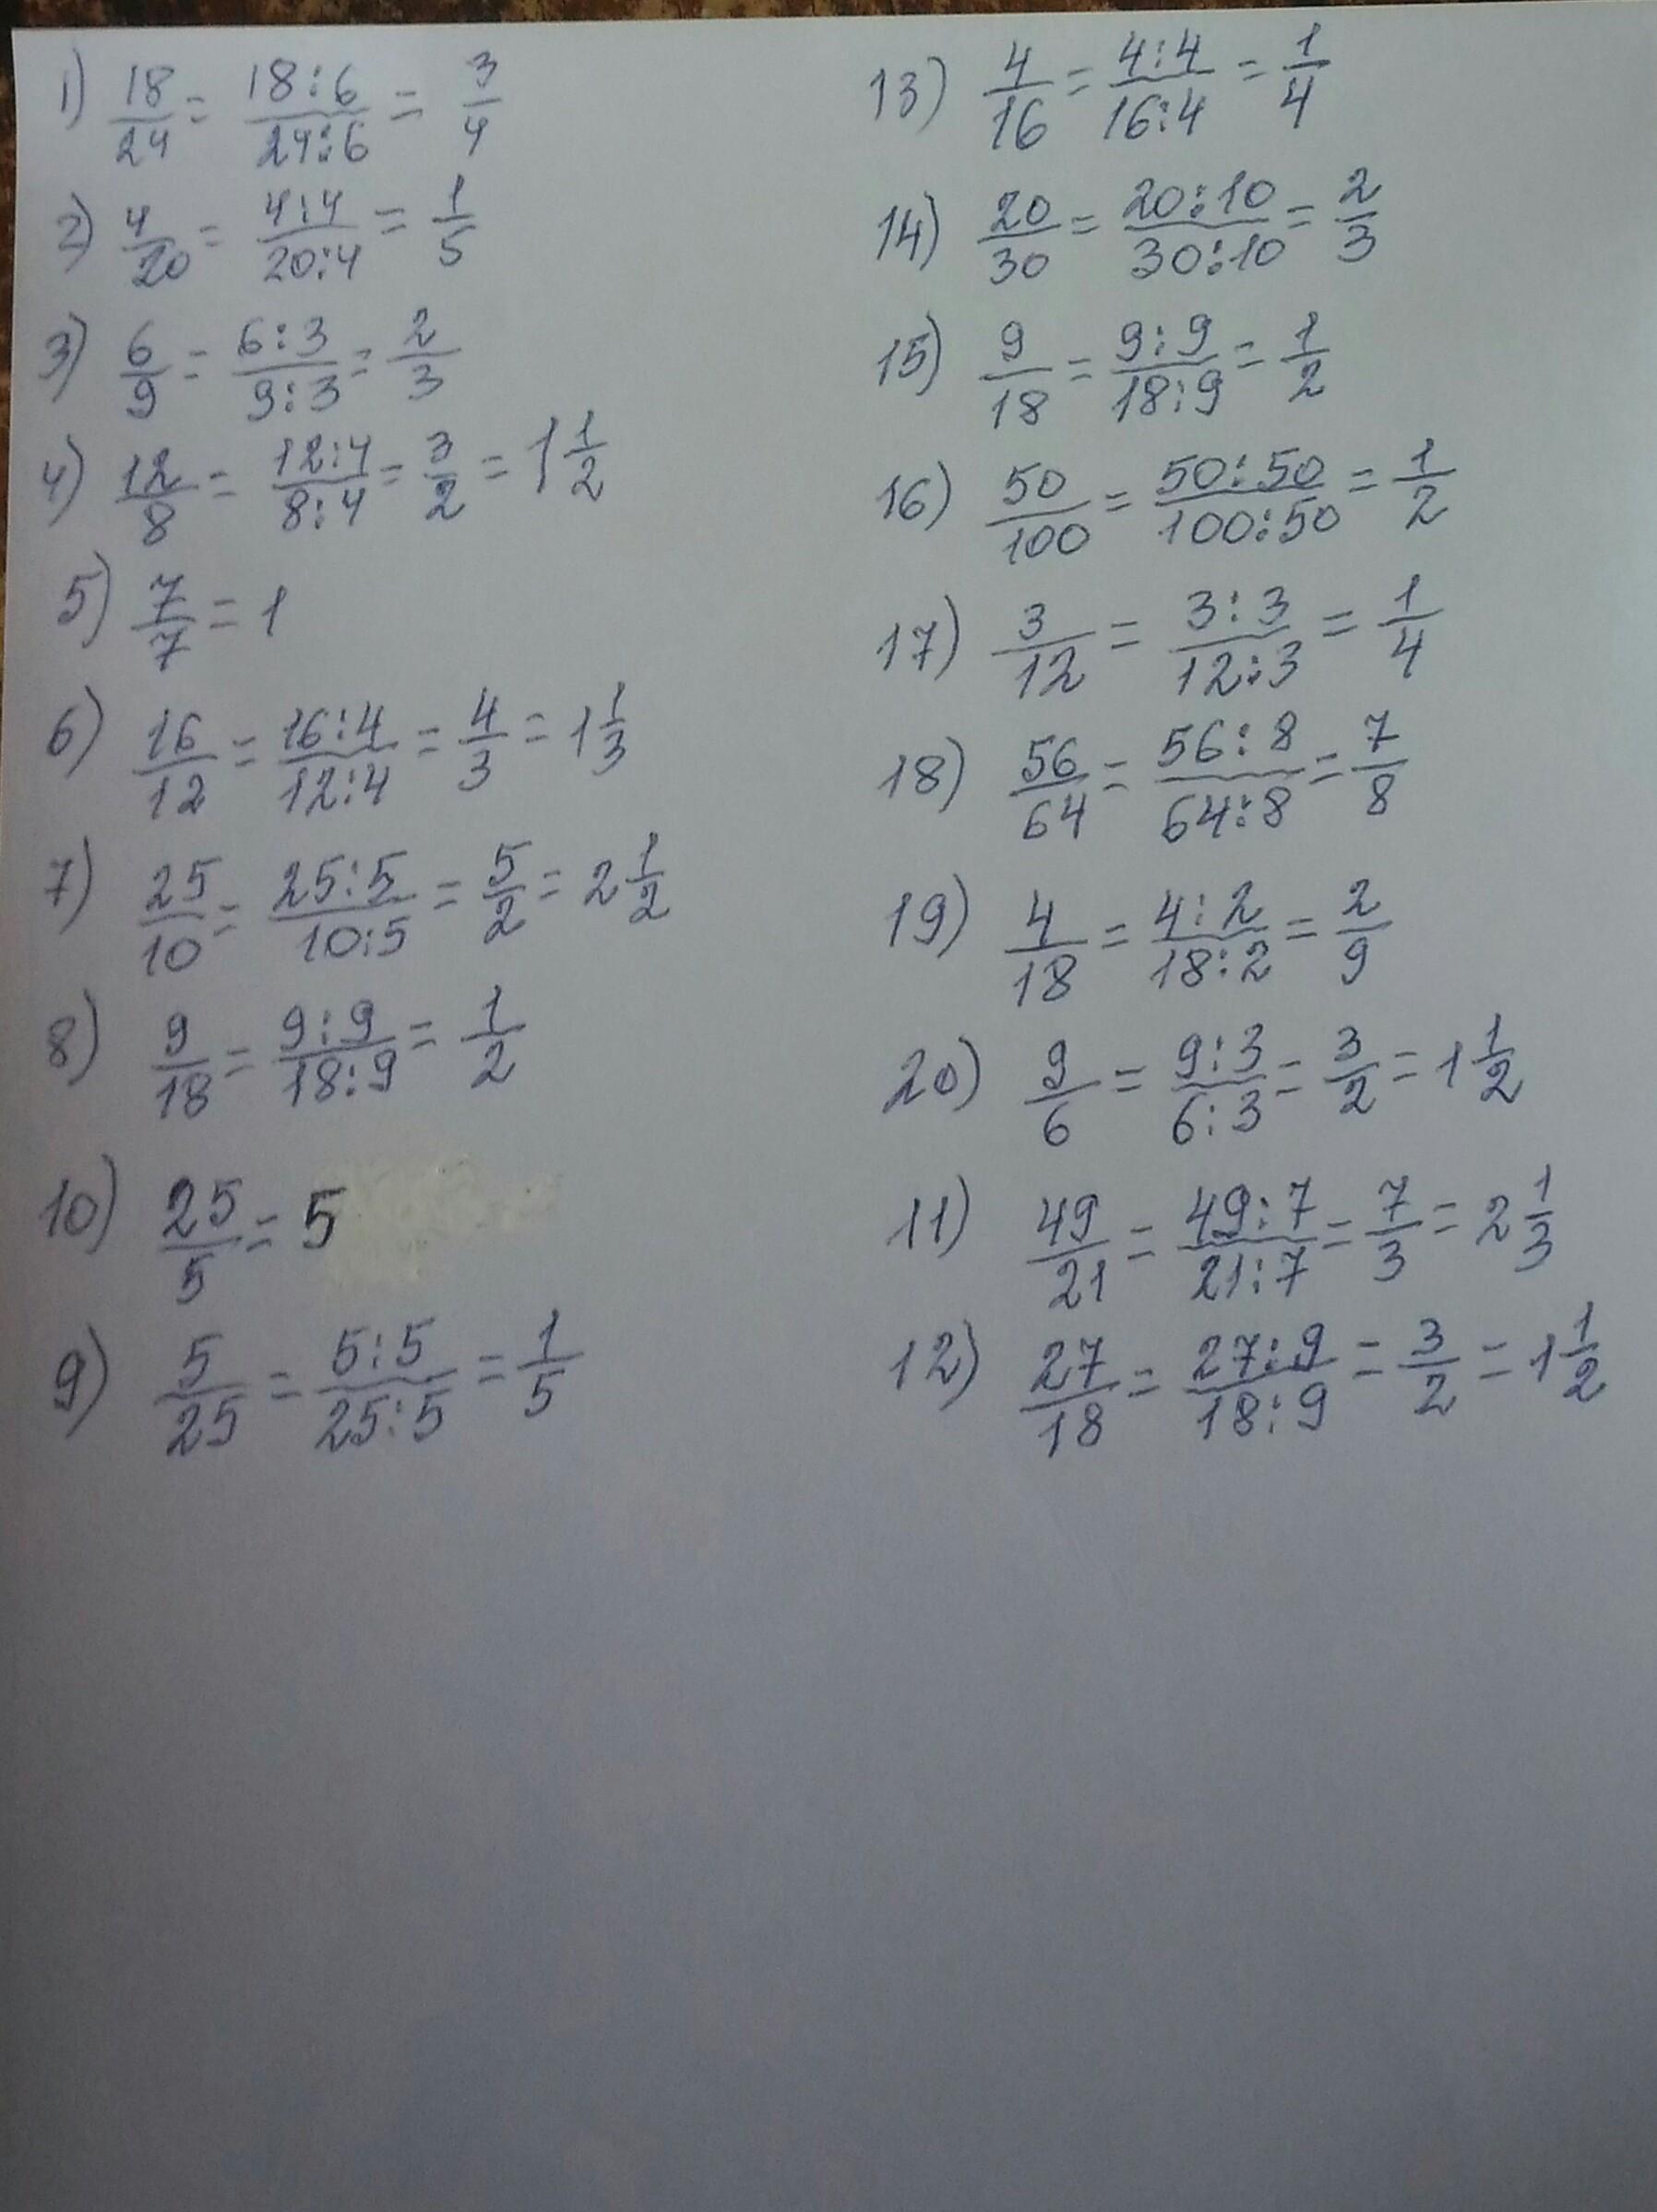 1) 18/24 = 18:6/24:6 = 3/4
2) 4/20 = 4:4/20:4 = 1/5
3) 6/9 = 6:3/9:3 = 2/3
4) 12/8 = 12:4/8:4 = 3/2 = 1 1/2
5) 7/7 = 1
6) 16/12 = 16:4/12:4 = 4/3 = 1 1/3
7) 25/10 = 25:5/10:5 = 5/2 = 2 1/2
8) 9/18 = 9:9/18:9 = 1/2
10) 25/5 = 5
9) 5/25 = 5:5/25:5 = 1/5
13) 4/16 = 4:4/16:4 = 1/4
14) 20/30 = 20:10/30:10 = 2/3
15) 9/18 = 9:9/18:9 = 1/2
16) 50/100 = 50:50/100:50 = 1/2
17) 3/12 = 3:3/12:3 = 1/4
18) 56/64 = 56:8/64:8 = 7/8
19) 4/18 = 4:2/18:2 = 2/9
20) 9/6 = 9:3/6:3 = 3/2 = 1 1/2
11) 49/21 = 49:7/21:7 = 7/3 = 2 1/3
12) 27/18 = 27:9/18:9 = 3/2 = 1 1/2